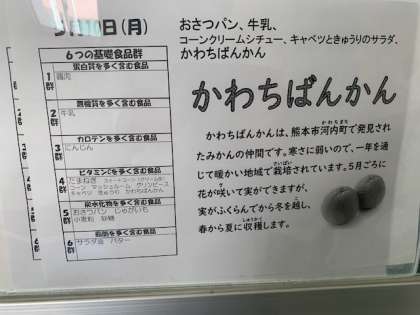 日(月)
6つの基礎食品群
蛋白質を多く含む食品
1群
鶏肉
無機質を多く含む食品
2群
牛乳
カロテンを多く含む食品
3群
にんじん
ビタミンCを多く含む食品
4群
たまねぎ スイートコーン(クリーム)
コーン マッシュルーム グリンピース
キャベツ きゅうり かわちばんかん
炭水化物を多く含む食品
5群
おさつパン じゃがいも
小麦粉 砂糖
脂肪を多く含む食品
6群
サラダ油 バター
おさつパン、牛乳、
コーンクリームシチュー、キャベツときゅうりのサラダ、
かわちばんかん
かわちばんかん
かわちばんかんは、熊本市河内町で発見され
たみかんの仲間です。寒さに弱いので、一年を通
じて暖かい地域で栽培されています。5月ごろに
花が咲いて実ができますが、
実がふくらんでから冬を越し、
春から夏に収穫します。